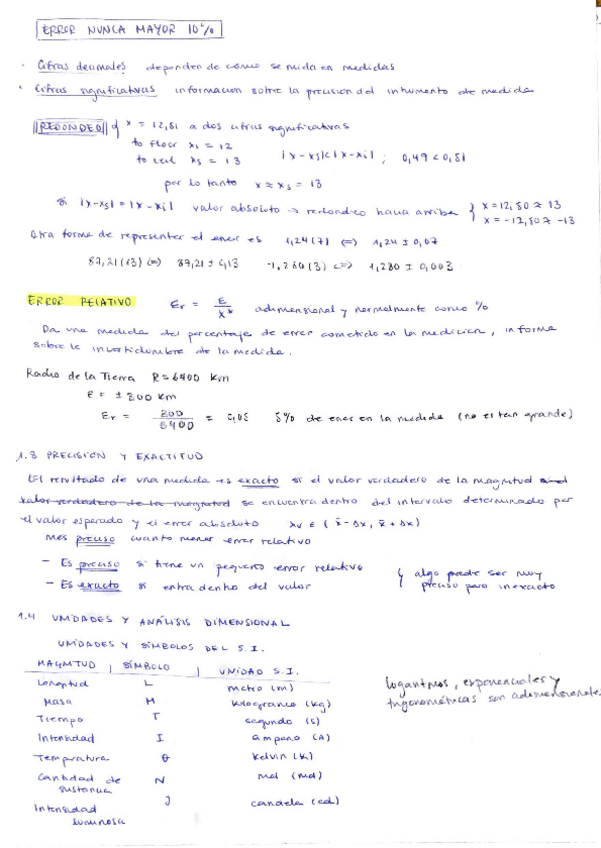 ERROR NUNCA MAYOR 10%
· Cifras decimales dependen de como se mida en medidas
· Cifras significativas informacion sobre la precision del instrumento de medida
REDONDEO { x = 12,51 a dos cifras significativas
to floor xi = 12
to ceil xs = 13 |x-xs|<|x-xi| ; 0,49 < 0,51
por lo tanto x ≈ xs = 13
si |x-xs| = |x-xi| valor absoluto → redondeo hacia arriba { x=12,50 ≈ 13
x = -12,50 ≈ -13
Otra forma de representar el error es 1,24(7) <=> 1,24 ± 0,07
87,21(13) <=> 87,21 ± 0,13 -1,280(3) <=> 1,280 ± 0,003
ERROR RELATIVO Er = E / x* adimensional y normalmente como %
Da una medida del porcentaje de error cometido en la medicion, informa
sobre la incertidumbre de la medida.
Radio de la Tierra R = 6400 km
E = ± 300 km
Er = 300 / 6400 = 0,05 5% de error en la medida (no es tan grande)
1.3 PRECISIÓN Y EXACTITUD
El resultado de una medida es exacto si el valor verdadero de la magnitud
valor verdadero de la magnitud se encuentra dentro del intervalo determinado por
el valor esperado y el error absoluto xv ∈ (x̄-Δx, x̄+Δx)
Mas preciso cuanto menor error relativo
- Es preciso si tiene un pequeño error relativo
- Es exacto si entra dentro del valor { algo puede ser muy
preciso pero inexacto
1.4 UNIDADES Y ANÁLISIS DIMENSIONAL
UNIDADES Y SÍMBOLOS DEL S.I.
MAGNITUD | SÍMBOLO | UNIDAD S.I.
Longitud L metro (m)
Masa M kilogramo (kg)
Tiempo T segundo (s)
Intensidad I amperio (A)
Temperatura θ kelvin (K)
Cantidad de sustancia N mol (mol)
Intensidad luminosa J candela (cd)
logaritmos, exponenciales y
trigonométricas son adimensionales